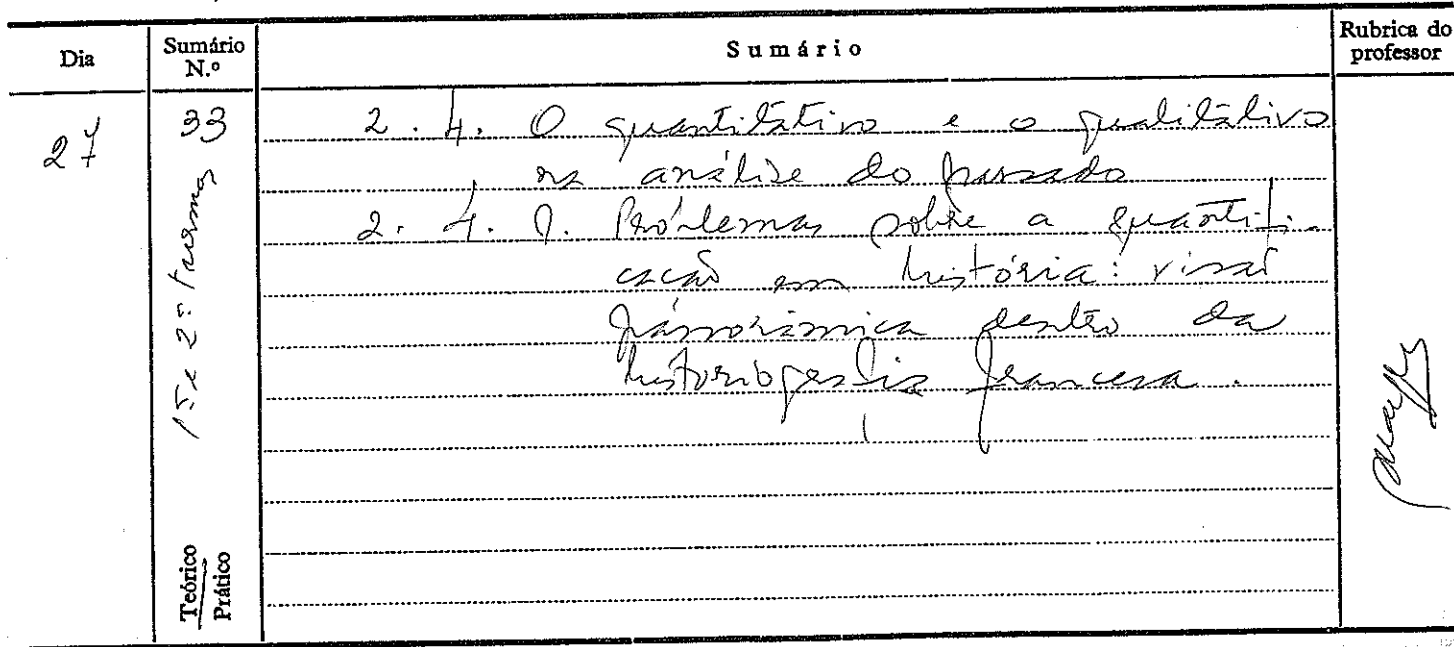 Dia
Sumário N.º
Sumário
Rubrica do professor
27
33
1.º e 2.º turmas
Teórico
Prático
2.4. O quantitativo e o qualitativo
na análise do passado
2.4.1. Problemas sobre a quantifi-
cação em história: visão
panorâmica dentro da
historiografia francesa.